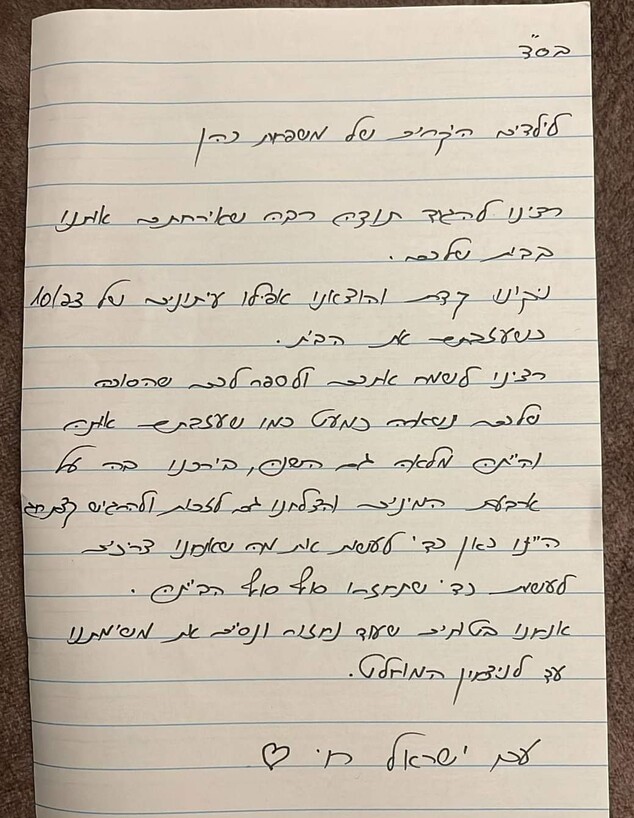 בס"ד
לילדים היקרים של משפחת כהן
רצינו להגיד תודה רבה שאירחתם אותנו
בבית שלכם.
ניקינו קצת והוצאנו אפילו עיתונים של צפ/10
כשעזבתם את הבית.
רצינו לשמח אתכם ולספר לכם שהסוכה
שלכם נשארה כמעט כמו שעזבתם אותה
והייתה מלאה גם השנה, בירכנו בה על
ארבעת המינים והצלחנו גם לזכות ולהרגיש קצת חג
היינו כאן כדי לעשות את מה שאנחנו צריכים
לעשות כדי שתחזרו סוף סוף הביתה.
אנחנו בטוחים שעוד נחזור ונסיים את משימתנו
עד לניצחון המוחלט.
עם ישראל חי ♡